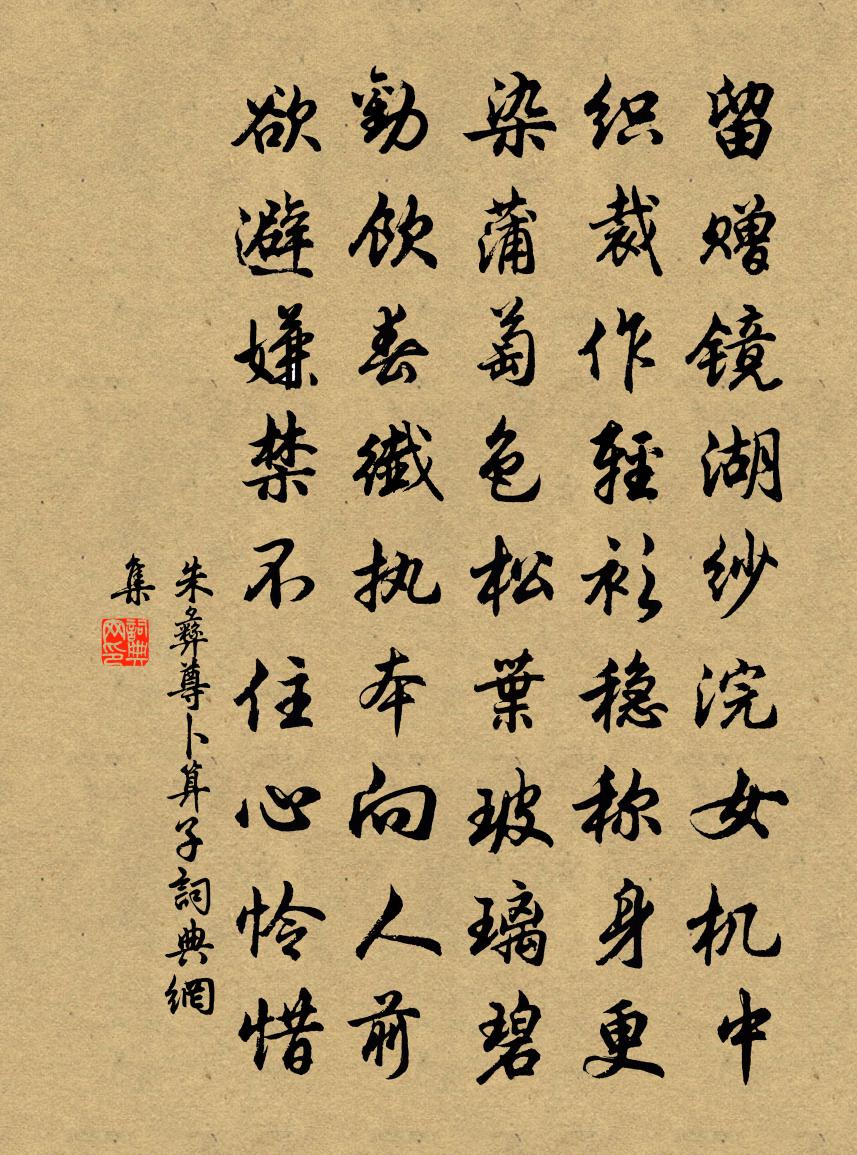 留赠镜湖纱浣女机中
织裁作輕衫稳称身更
染蒲萄色松葉玻璃碧
勸飲春纖执本向人前
欲避嫌禁不住心怜惜
朱彝尊卜算子詞典網
集
詞典
网印